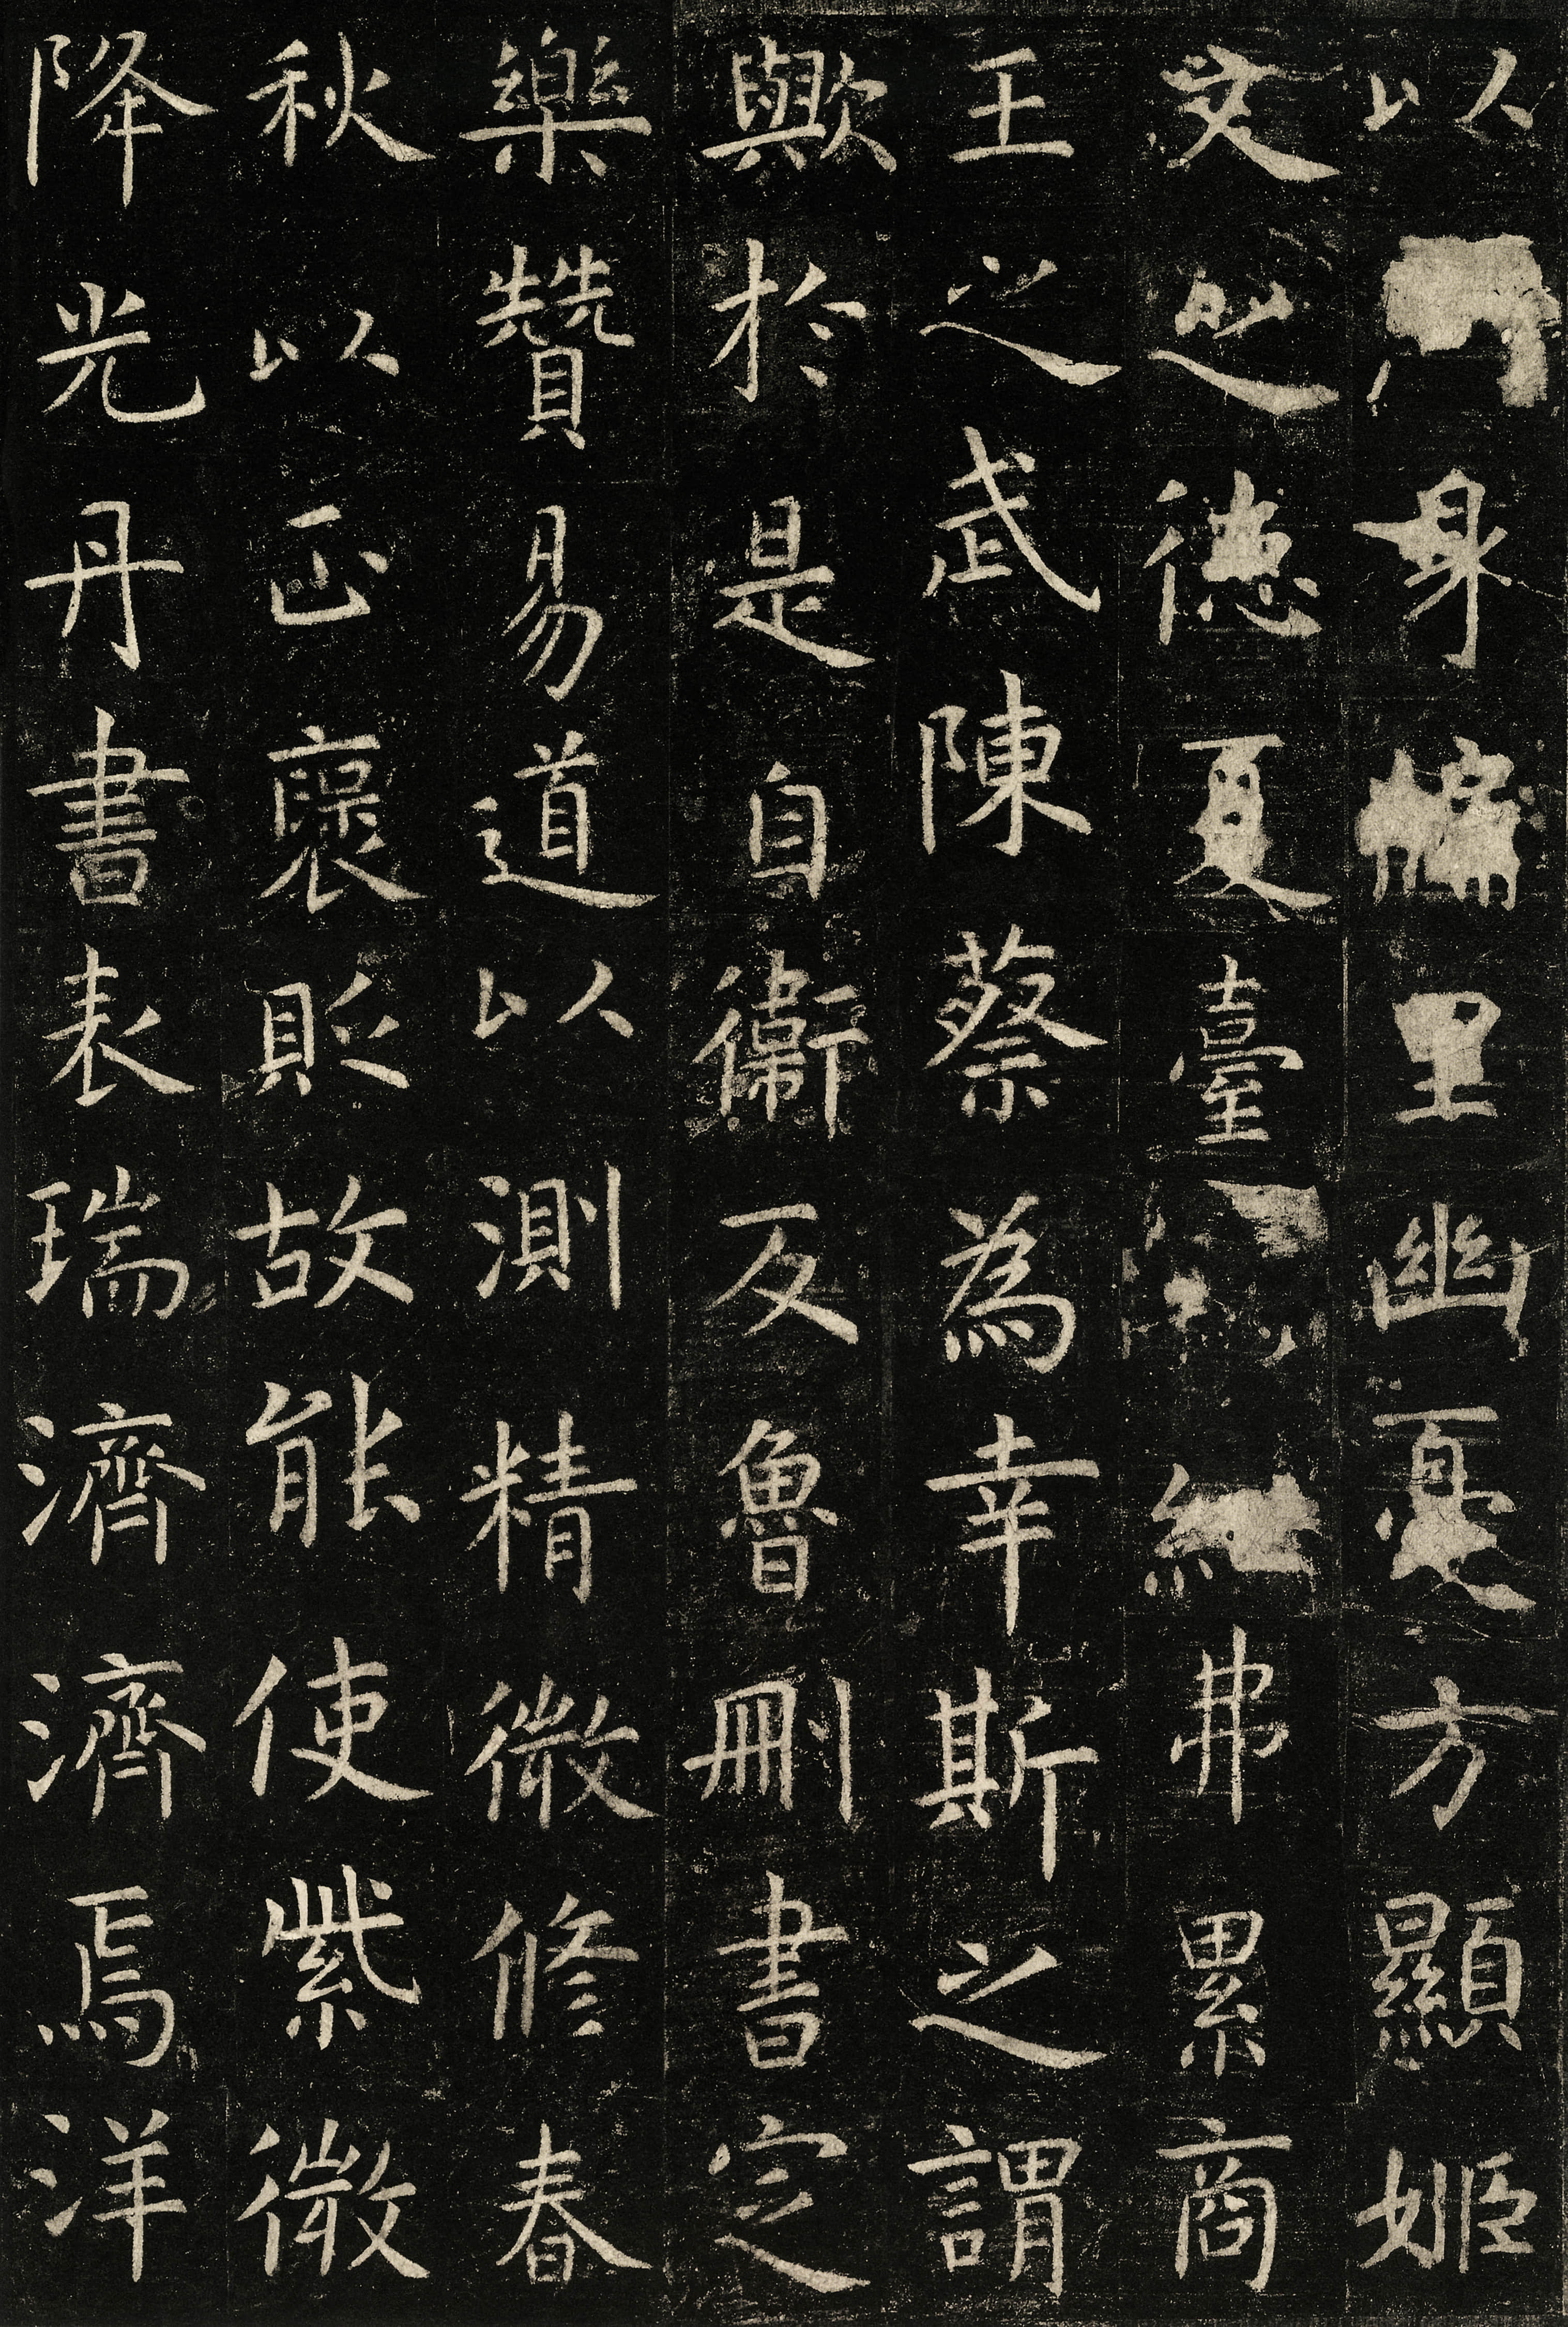 以身牖里幽憂方顯姬
文之德夏臺弗累商
王之武陳蔡為幸斯之謂
歟於是自衛反魯刪書定
樂贊易道以測精微脩春
秋以正襃貶故能使紫微
降光丹書表瑞濟濟焉洋